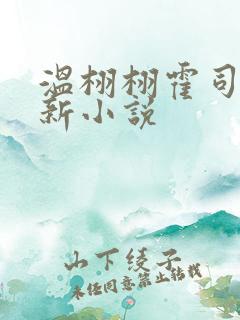 温栩栩霍司
新小说
山下绫子
未经同意禁止转载